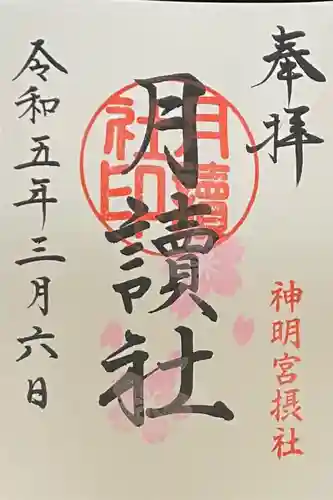 奉拝
神明宮摂社
月讀社
月讀社印
令和五年三月六日